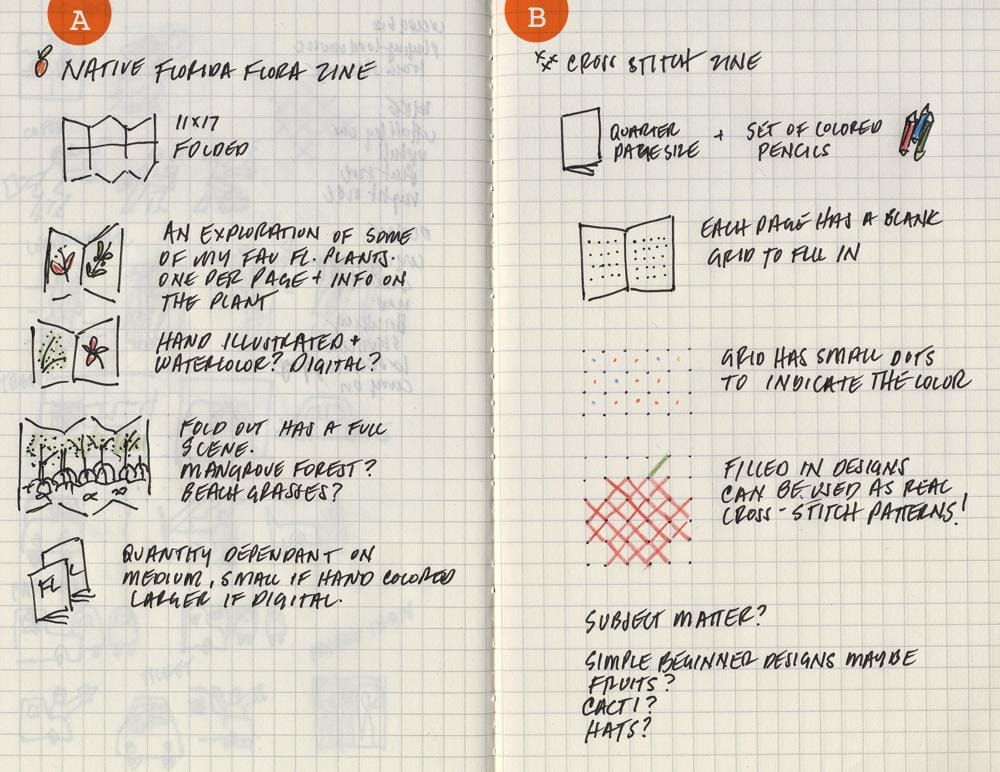 A
NATIVE FLORIDA FLORA ZINE
11x17
FOLDED
AN EXPLORATION OF SOME
OF MY FAV FL. PLANTS.
ONE PER PAGE + INFO ON
THE PLANT
HAND ILLUSTRATED +
WATERCOLOR? DIGITAL?
FOLD OUT HAS A FULL
SCENE.
MANGROVE FOREST?
BEACH GRASSES?
FL
QUANTITY DEPENDANT ON
MEDIUM, SMALL IF HAND COLORED
LARGER IF DIGITAL.
B
CROSS STITCH ZINE
QUARTER
PAGE SIZE
+ SET OF COLORED
PENCILS
EACH PAGE HAS A BLANK
GRID TO FILL IN
GRID HAS SMALL DOTS
TO INDICATE THE COLOR
FILLED IN DESIGNS
CAN BE USED AS REAL
CROSS-STITCH PATTERNS!
SUBJECT MATTER?
SIMPLE BEGINNER DESIGNS MAYBE
FRUITS?
CACTI?
HATS?